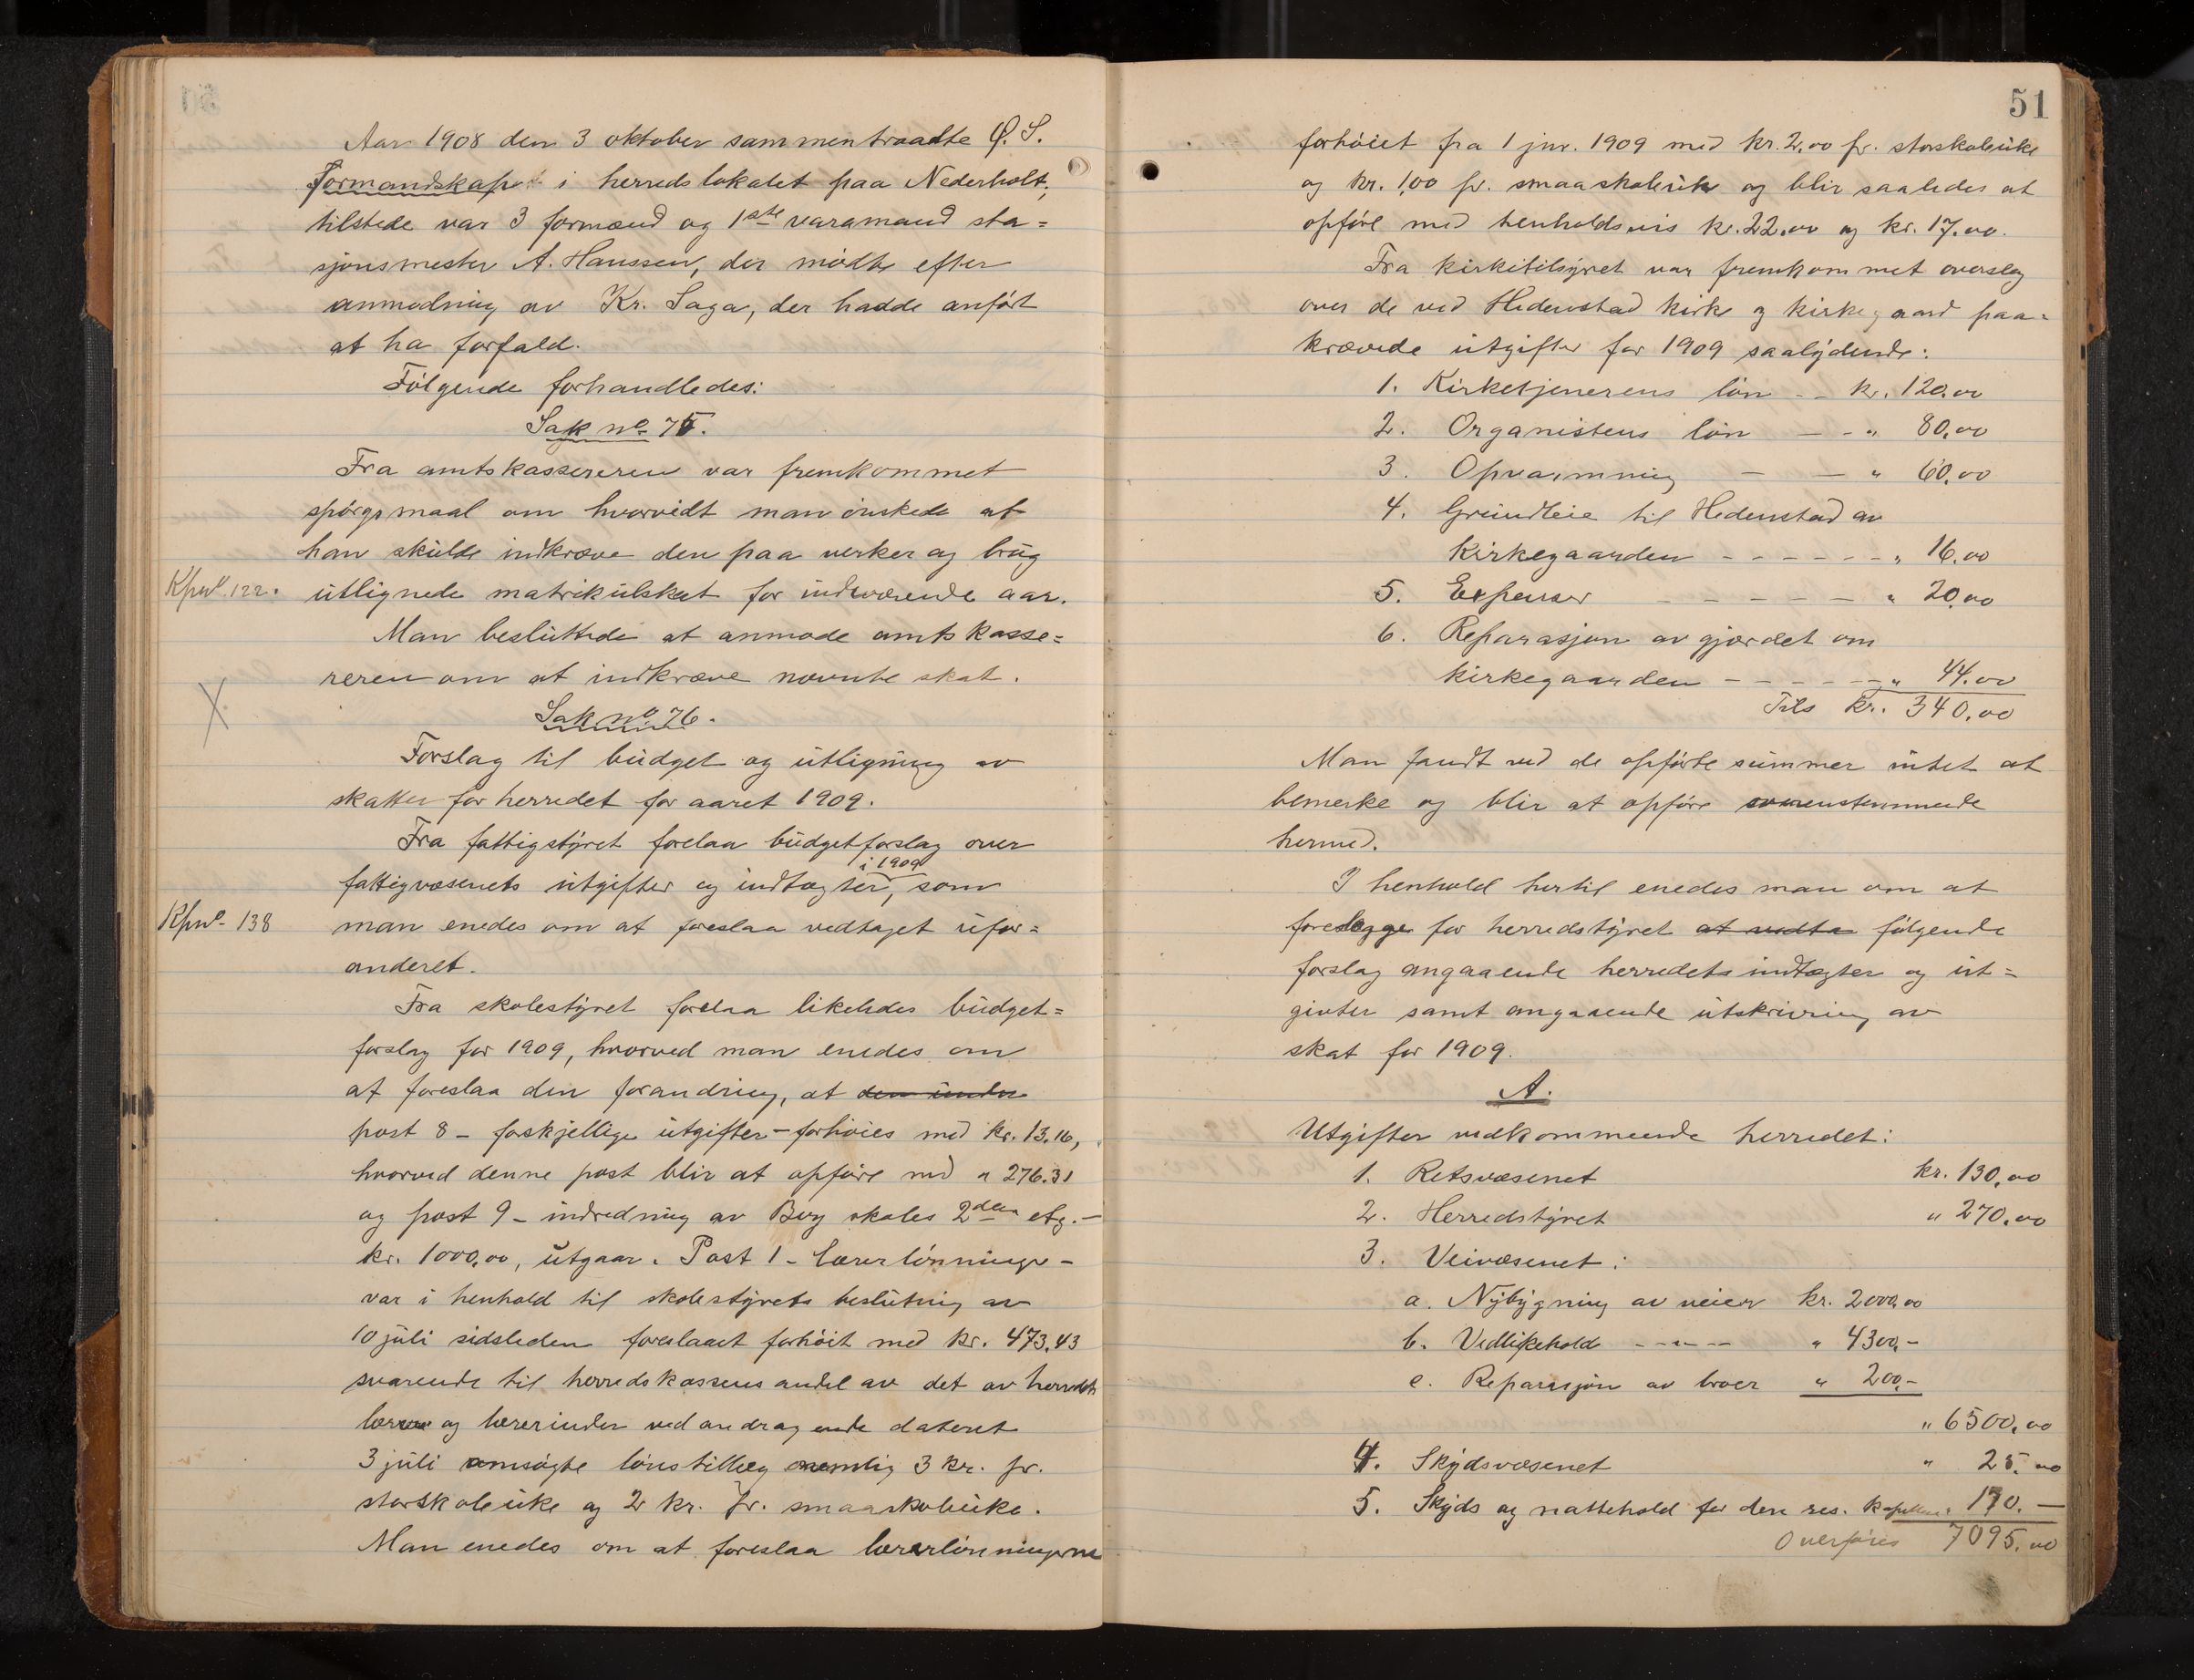 Aar 1908 den 3 oktober sammentraadte Ø. S.
Formandskap i herredslokalet paa Nederholt;
tilstede var 3 formænd og 1ste varamand sta=
sjonsmester A. Hanssen, der mødte efter
anmodning av Kr. Saga, der hadde anført
at ha forfald.
Følgende forhandledes:
Sak no 75.
Fra amtskassereren var fremkommet
spørgsmaal om hvorvidt man ønskede at
han skulde indkræve den paa verker og brug
Kpno 122. utlignede matrikulskat for indeværende aar.
Man besluttede at anmode amtskasse=
reren om at indkræve nævnte skat.
X
Sak no 76.
Forslag til budget og utligning av
skatter for herredet for aaret 1909.
Fra fattigstyret forelaa budgetforslag over
i 1909
fattigvæsenets utgifter og indtægter, som
Kpno 138 man enedes om at foreslaa vedtaget ufor=
andret.
Fra skolestyret forelaa likeledes budget=
forslag for 1909, hvorved man enedes om
at foreslaa den forandring, at den under
post 8 - forskjellige utgifter - forhøies med kr. 13.16,
hvorved denne post blir at opføre med " 276.31
og post 9 - indredning av Berg skoles 2den etg. -
kr. 1000,00, utgaar. Post 1 - Lærerlønninger -
var i henhold til skolestyrets beslutning av
10 juli sidsleden foreslaaet forhøit med kr. 473,43
svarende til herredskassens andel av det av herredets
lærere og lærerinder ved andragende dateret
3 juli ansøgte lønstillæg nemlig 3 kr. pr.
storskoleuke og 2 kr. pr. smaaskoleuke.
Man enedes om at foreslaa lærerlønningerne
51
forhøiet fra 1 jnr. 1909 med kr. 2,00 pr. storskoleuke
og kr. 1,00 pr. smaaskoleuke og blir saaledes at
opføre med henholdsvis kr. 22.00 og kr. 17.00.
Fra kirketilsynet var fremkommet overslag
over de ved Hedenstad kirke og kirkegaard paa=
krævede utgifter for 1909 saalydende:
1. Kirketjenerens løn - - kr. 120.00
2. Organistens løn - - " 80,00
3. Opvarmning - - " 60,00
4. Grundleie til Hedenstad av
kirkegaarden - - - - - - " 16.00
5. Expenser - - - - - " 20,00
6. Reparasjon av gjærdet om
kirkegaarden - - - - - " 44.00
Tils kr. 340,00
Man fandt ved de opførte summer intet at
bemerke og blir at opføre overenstemmende
hermed.
I henhold hertil enedes man om at
forelægge for herredstyret at vedta følgende
forslag angaaende herredets indtægter og ut=
givter samt angaaende utskrivning av
skat for 1909.
A.
Utgifter vedkommende herredet:
1. Retsvæsenet kr. 130,00
2. Herredstyret " 270,00
3. Veivæsenet:
a. Nybygning av veier kr. 2000,00
b. Vedlikehold - - " - - " 4300,-
c. Reparasjon av broer " 200,-
" 6500,00
4. Skydsvæsenet " 25.00
5. Skyds og nattehold for den res. kapellan " 170. -
Overføres 7095.00